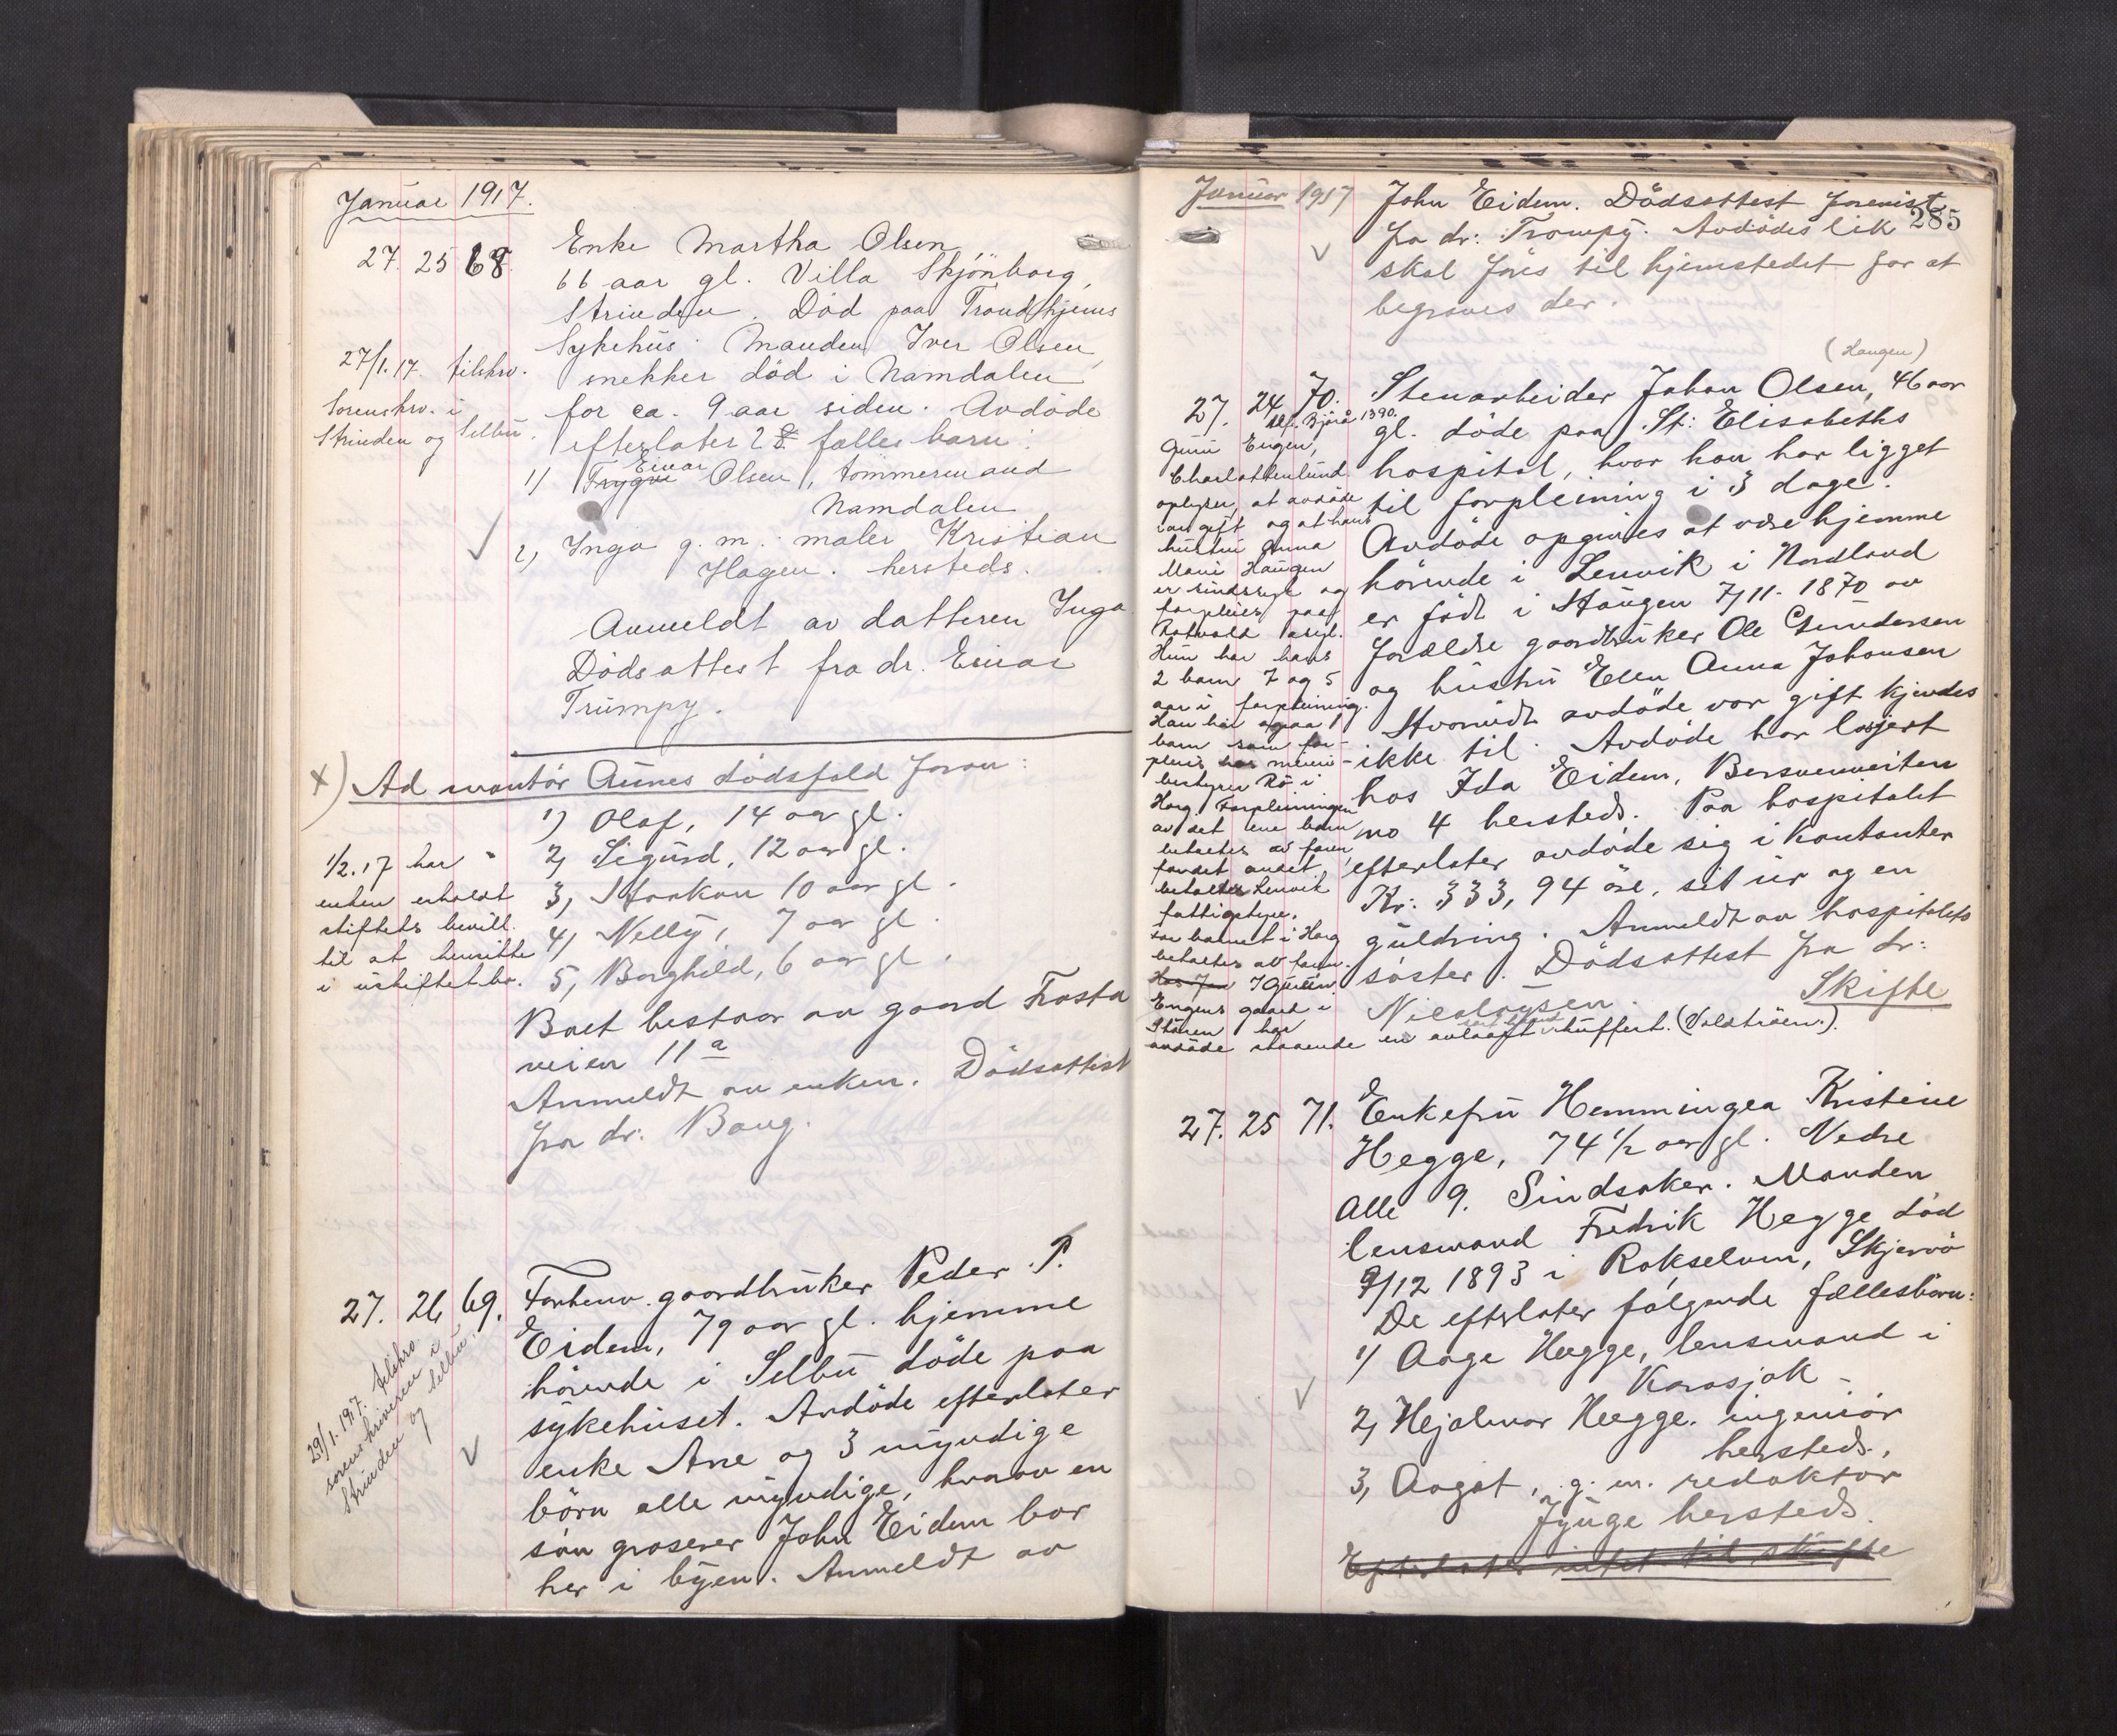 Januar 1917.
27. 25 68. Enke Martha Olsen
66 aar gl. Villa Skjönborg,
Strinden. Död paa Trondhjems
Sykehus. Manden Iver Olsen,
snekker död i Namdalen
for ca. 9 aar siden. Avdöde
efterlater 2 fælles barn:
1) Trygve Einar Olsen, tömmermand
Namdalen
2, Inga g. m. maler Kristian
Hagen. hersteds.
Anmeldt av datteren Inga
Dödsattest fra dr. Einar
Trumpy.
27/1. 17. tilskr.
Sorenskr. i
Strinden og Selbu.
x) Ad montör Aunes dödsfald foran:
1) Olaf, 14 aar gl.
2, Sigurd, 12 aar gl.
3, Haakon 10 aar gl.
4) Nelly, 7 aar gl
5, Borghild, 6 aar gl.
Boet bestaar av gaard Frosta
veien 11 a
Anmeldt av enken. Dödsattest
fra dr. Baug.
1/2. 17 har
enken erholdt
stiftets bevill.
til at hensitte
i uskiftet bo.
27. 26 69. Forhenv. gaardbruker Peder P.
Eidem, 79 aar gl. hjemme
hörende i Selbu döde paa
sykehuset. Avdöde efterlater
enke Ane og 3 myndige
börn alle myndige, hvorav en
sön grosserer John Eidem bor
her i byen. Anmeldt av
29/1. 1917. tilskr.
sorenskriveren i
Strinden og Selbu.
Januar 1917
285
John Eidem. Dödsattest forevist
fra dr: Trampy. Avdödes lik
skal föres til hjemstedet for at
begraves der.
(Haugen)
27. 24, 70. Stenarbeider Johan Olsen, 46 aar
gl. döde paa St: Elisabeths
hospital, hvor han har ligget
til forpleining i 3 dage.
Avdöde opgives at være hjemme
hörende i Lenvik i Nordland
er födt i Haugen 7/11. 1870 av
forældre gaardbruker Ole Gundersen
og hustru Ellen Anna Johansen
Hvorvidt avdöde var gift kjendes
ikke til. Avdöde har losjert
hos Ida Eidem, Bersvenveiten
no 4 hersteds. Paa hospitalet
efterlater avdöde sig i kontanter
Kr: 333, 94 öre, sit ur og en
guldring. Anmeldt av hospitalets
söster. Dödsattest fra dr:
Nicolaysen.
Skifte
1390.
Engen,
Charlottenlund
oplyser, at avdöde
var gift og at hans
hustru Anna
Marie Haugen
er sindssyk og
forpleies paa
Rotvold asyl.
Hun har hans
2 barn 7 og 5
aar i forpleining.
Han har ogsaa 1
barn som for-
pleies hos meieri-
bestyrer Rö i
Horg. Forpleiningen
av det ene barn
betaltes av faren,
for det andet
betalte Lenvik
fattigstyre.
For barnet i Horg
betaltes av faren.
Engens gaard i
Stören har
avdöde staaende en avlaast kuffert. (Voldtröen.).
27. 25 71. Enkefru Hemmingea Kristine
Hegge, 74 1/2 aar gl. Nedre
Alle 9. Sindsaker. Manden
lensmand Fredrik Hegge död
9/12 1893 i Rakselven, Skjervö
De efterlater fölgende fællesbörn:
1) Aage Hegge, lensmand i
Karasjok -
2, Hjalmar Hegge. ingeniör
hersteds.,
3, Aagot, g. m. redaktör
Jynge hersteds.
Efterlater intet til skifte